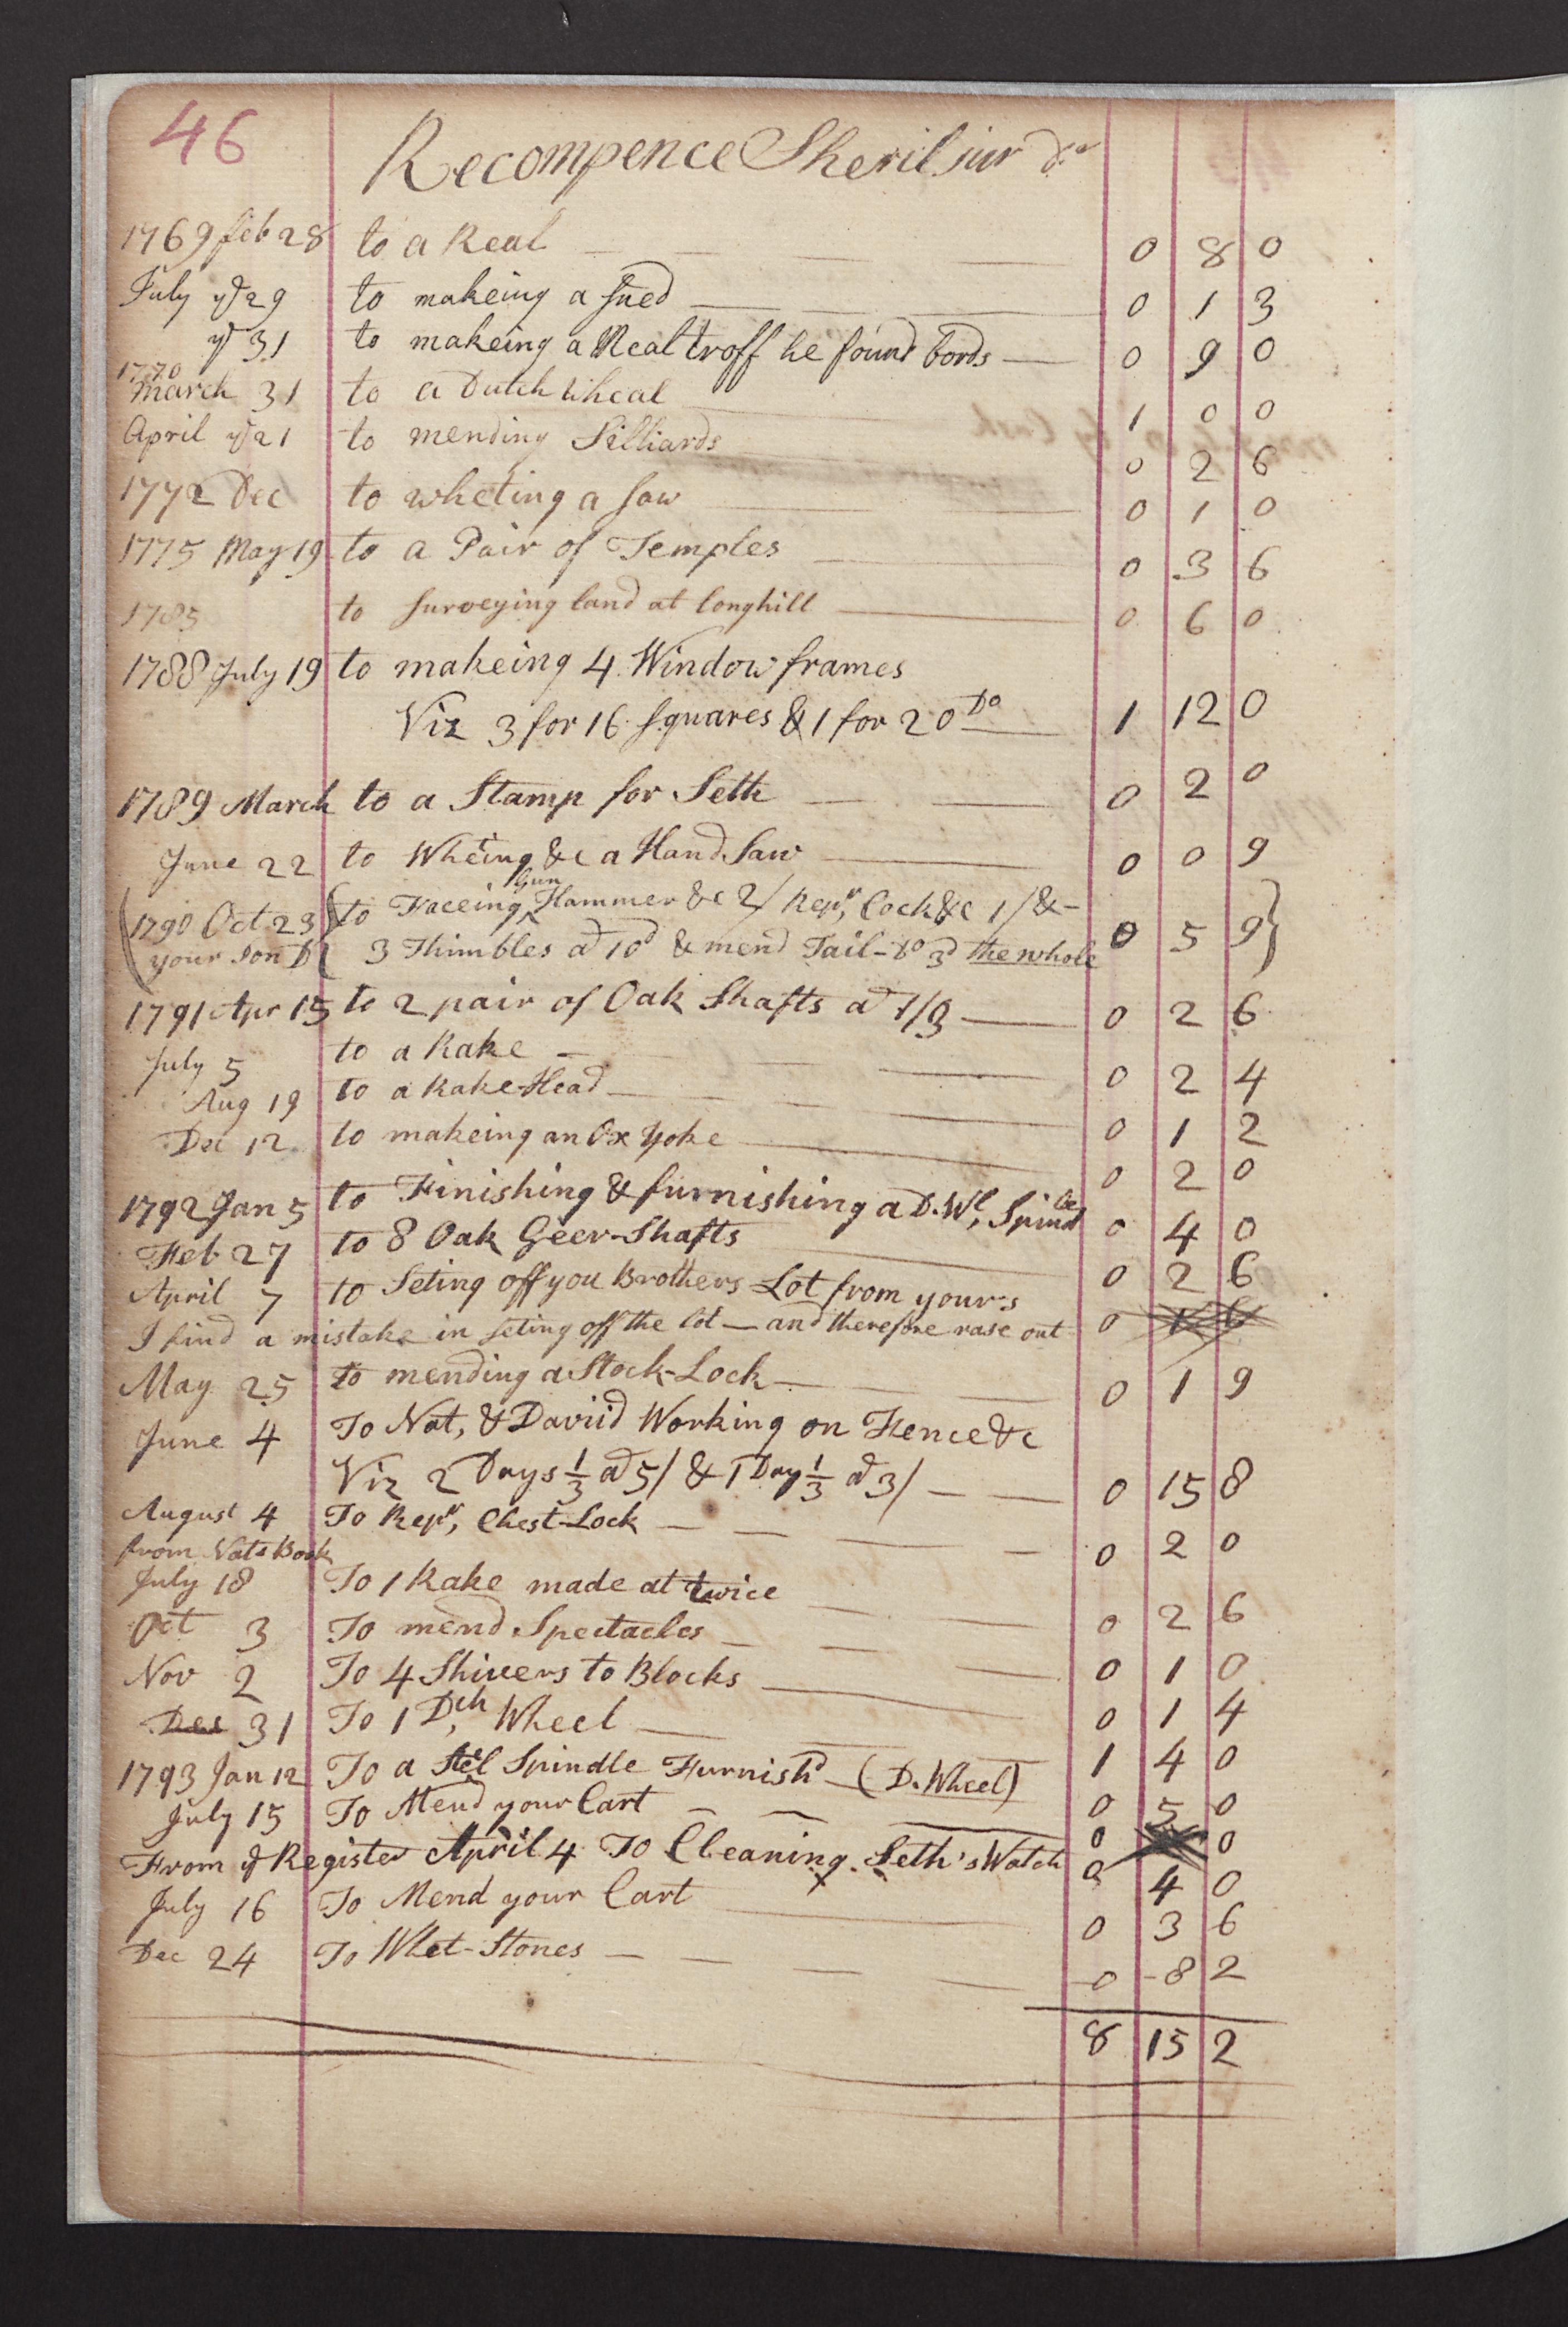 46
Recompence Sheril jur Dr
1769 feb 28 to a Real 0 8 0
July ye 29 to makeing a sned 0 1 3
ye 31 to makeing a Real troff he found bords 0 9 0
1770
March 31 to a Dutch wheal 1 0 0
April ye 21 to mending Stilliards 0 2 6
1772 Dec to wheting a saw 0 1 0
1775 May 19 to a Pair of Temples 0 3 6
1785 to surveying land at longhill 0 6 0
1788 July 19 to makeing 4 Window frames
Viz 3 for 16 squares & 1 for 20 Do 1 12 0
1789 March to a Stamp for Seth 0 2 0
June 22 to Wheting &c a Hand Saw 0 0 9
(1790 Oct 23 to Faceing Gun Hammer &c 2/ Repr, Cock &c 1/ &-
your son D 3 Thimbles ad 10d & mend Tail-Do 3d the whole 0 5 9)
1791 Apr 15 to 2 pair of Oak Shafts ad 1/3 0 2 6
July 5 to a Rake 0 2 4
Aug 19 to a Rake-Head 0 1 2
Dec 12 to makeing an Ox Yoke 0 2 0
1792 Jan 5 to Finishing & furnishing a D. Wl, Spindle 0 4 0
Feb 27 to 8 Oak Geer-Shafts 0 2 6
April 7 to Seting off you Brothers Lot from your's
I find a mistake in seting off the lot — and therefore rase out 0 1 6
May 25 to mending a Stock-Lock 0 1 9
June 4 To Nat, & Daviid Working on Fence &c
Viz 2 Days 1/3 ad 5/ & 1 Day 1/3 ad 3/ 0 15 8
August 4 To Repr, Chest-Lock 0 2 0
from Nats Book
July 18 To 1 Rake made at twice 0 2 6
Oct 3 To mend Spectacles 0 1 0
Nov 2 To 4 Shivers to Blocks 0 1 4
Dec 31 To 1 Dch, Wheel 1 4 0
1793 Jan 12 To a Stel Spindle Furnishd (D. Wheel) 0 5 0
July 15 To Mend your Cart 0 0
From ye Register April 4 To Cleaning Seth's Watch 0 4 0
July 16 To Mend your Cart 0 3 6
Dec 24 To Whet-Stones 0 8 2
8 15 2